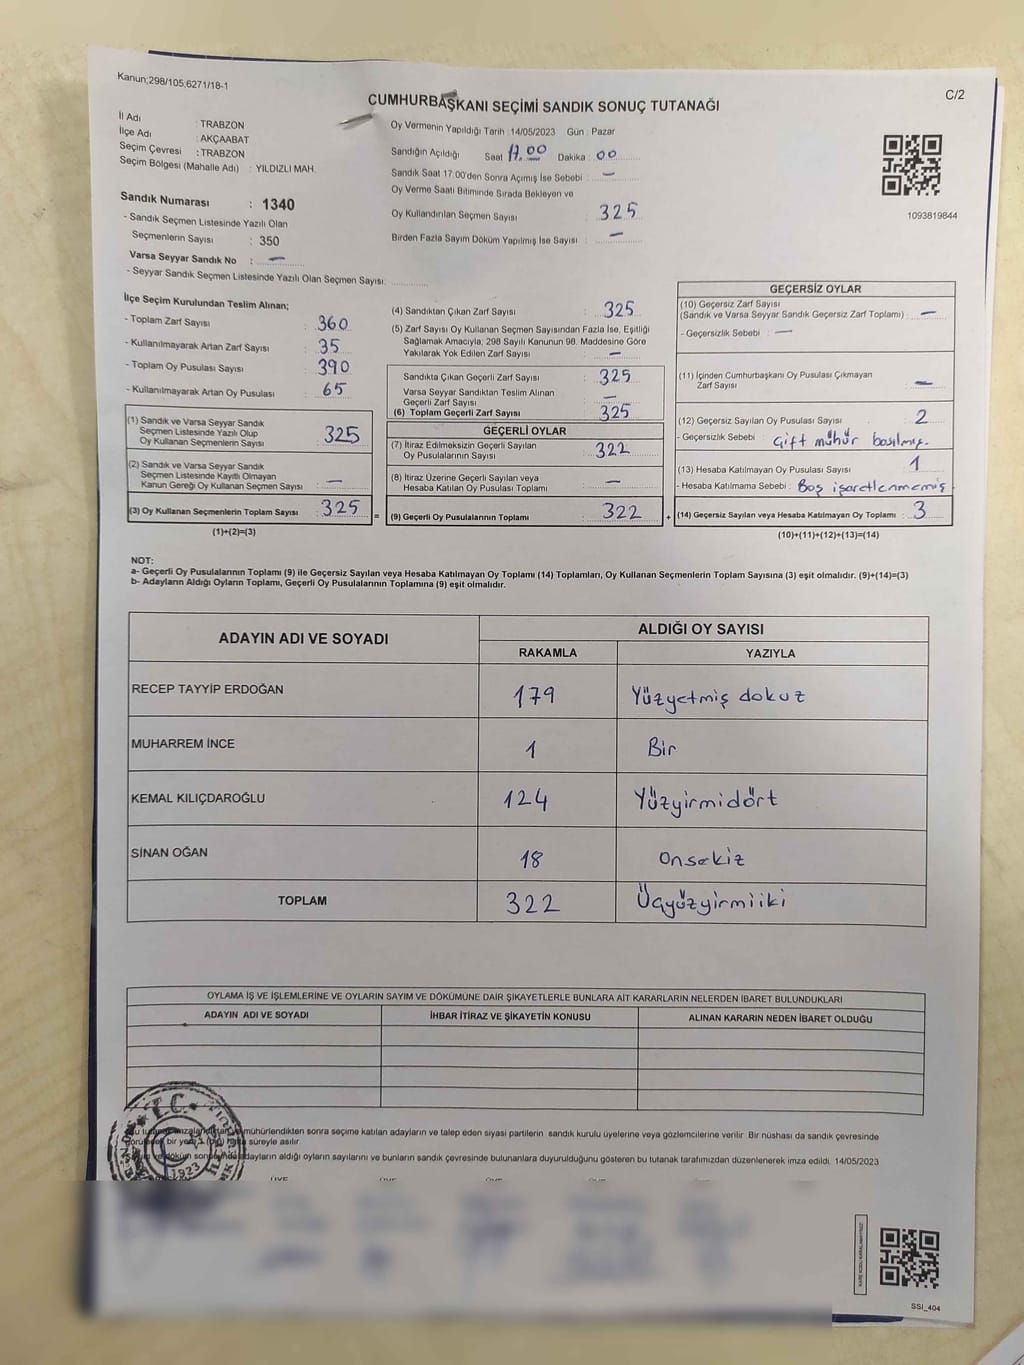 Kanun;298/105;6271/18-1
C/2
CUMHURBAŞKANI SEÇİMİ SANDIK SONUÇ TUTANAĞI
İl Adı : TRABZON
İlçe Adı : AKÇAABAT
Seçim Çevresi : TRABZON
Seçim Bölgesi (Mahalle Adı) : YILDIZLI MAH.
Oy Vermenin Yapıldığı Tarih : 14/05/2023 Gün : Pazar
Sandığın Açıldığı Saat 17.00 Dakika : 00
Sandık Saat 17.00'den Sonra Açımış İse Sebebi : —
Oy Verme Saati Bitiminde Sırada Bekleyen ve
Oy Kullandırılan Seçmen Sayısı : 325
Birden Fazla Sayım Döküm Yapılmış İse Sayısı : —
1093819844
Sandık Numarası : 1340
- Sandık Seçmen Listesinde Yazılı Olan
Seçmenlerin Sayısı : 350
Varsa Seyyar Sandık No : —
- Seyyar Sandık Seçmen Listesinde Yazılı Olan Seçmen Sayısı:
İlçe Seçim Kurulundan Teslim Alınan;
- Toplam Zarf Sayısı : 360
- Kullanılmayarak Artan Zarf Sayısı : 35
- Toplam Oy Pusulası Sayısı : 390
- Kullanılmayarak Artan Oy Pusulası : 65
(1) Sandık ve Varsa Seyyar Sandık
Seçmen Listesinde Yazılı Olup
Oy Kullanan Seçmenlerin Sayısı : 325
(2) Sandık ve Varsa Seyyar Sandık
Seçmen Listesinde Kayıtlı Olmayan
Kanun Gereği Oy Kullanan Seçmen Sayısı : —
(3) Oy Kullanan Seçmenlerin Toplam Sayısı : 325
(1)+(2)=(3)
(4) Sandıktan Çıkan Zarf Sayısı : 325
(5) Zarf Sayısı Oy Kullanan Seçmen Sayısından Fazla İse, Eşitliği
Sağlamak Amacıyla; 298 Sayılı Kanunun 98. Maddesine Göre
Yakılarak Yok Edilen Zarf Sayısı : —
Sandıkta Çıkan Geçerli Zarf Sayısı : 325
Varsa Seyyar Sandıktan Teslim Alınan
Geçerli Zarf Sayısı : —
(6) Toplam Geçerli Zarf Sayısı : 325
GEÇERLİ OYLAR
(7) İtiraz Edilmeksizin Geçerli Sayılan
Oy Pusulalarının Sayısı : 322
(8) İtiraz Üzerine Geçerli Sayılan veya
Hesaba Katılan Oy Pusulası Toplamı : —
= (9) Geçerli Oy Pusulalarının Toplamı : 322
GEÇERSİZ OYLAR
(10) Geçersiz Zarf Sayısı
(Sandık ve Varsa Seyyar Sandık Geçersiz Zarf Toplamı) : —
- Geçersizlik Sebebi : —
(11) İçinden Cumhurbaşkanı Oy Pusulası Çıkmayan
Zarf Sayısı : —
(12) Geçersiz Sayılan Oy Pusulası Sayısı : 2
- Geçersizlik Sebebi : Çift mühür basılmış.
(13) Hesaba Katılmayan Oy Pusulası Sayısı : 1
- Hesaba Katılmama Sebebi : Boş işaretlenmemiş
+ (14) Geçersiz Sayılan veya Hesaba Katılmayan Oy Toplamı : 3
(10)+(11)+(12)+(13)=(14)
NOT:
a- Geçerli Oy Pusulalarının Toplamı (9) ile Geçersiz Sayılan veya Hesaba Katılmayan Oy Toplamı (14) Toplamları, Oy Kullanan Seçmenlerin Toplam Sayısına (3) eşit olmalıdır. (9)+(14)=(3)
b- Adayların Aldığı Oyların Toplamı, Geçerli Oy Pusulalarının Toplamına (9) eşit olmalıdır.
ADAYIN ADI VE SOYADI
ALDIĞI OY SAYISI
RAKAMLA YAZIYLA
RECEP TAYYİP ERDOĞAN 179 Yüzyetmiş dokuz
MUHARREM İNCE 1 Bir
KEMAL KILIÇDAROĞLU 124 Yüzyirmidört
SİNAN OĞAN 18 Onsekiz
TOPLAM 322 Üçyüzyirmiiki
OYLAMA İŞ VE İŞLEMLERİNE VE OYLARIN SAYIM VE DÖKÜMÜNE DAİR ŞİKAYETLERLE BUNLARA AİT KARARLARIN NELERDEN İBARET BULUNDUKLARI
ADAYIN ADI VE SOYADI İHBAR İTİRAZ VE ŞİKAYETİN KONUSU ALINAN KARARIN NEDEN İBARET OLDUĞU
mühürlendikten sonra seçime katılan adayların ve talep eden siyasi partilerin sandık kurulu üyelerine veya gözlemcilerine verilir. Bir nüshası da sandık çevresinde
bir yere süreyle asılır.
adayların aldığı oyların sayılarını ve bunların sandık çevresinde bulunanlara duyurulduğunu gösteren bu tutanak tarafımızdan düzenlenerek imza edildi. 14/05/2023
T.C.
1923
ÜYE ÜYE ÜYE ÜYE
SSI_404